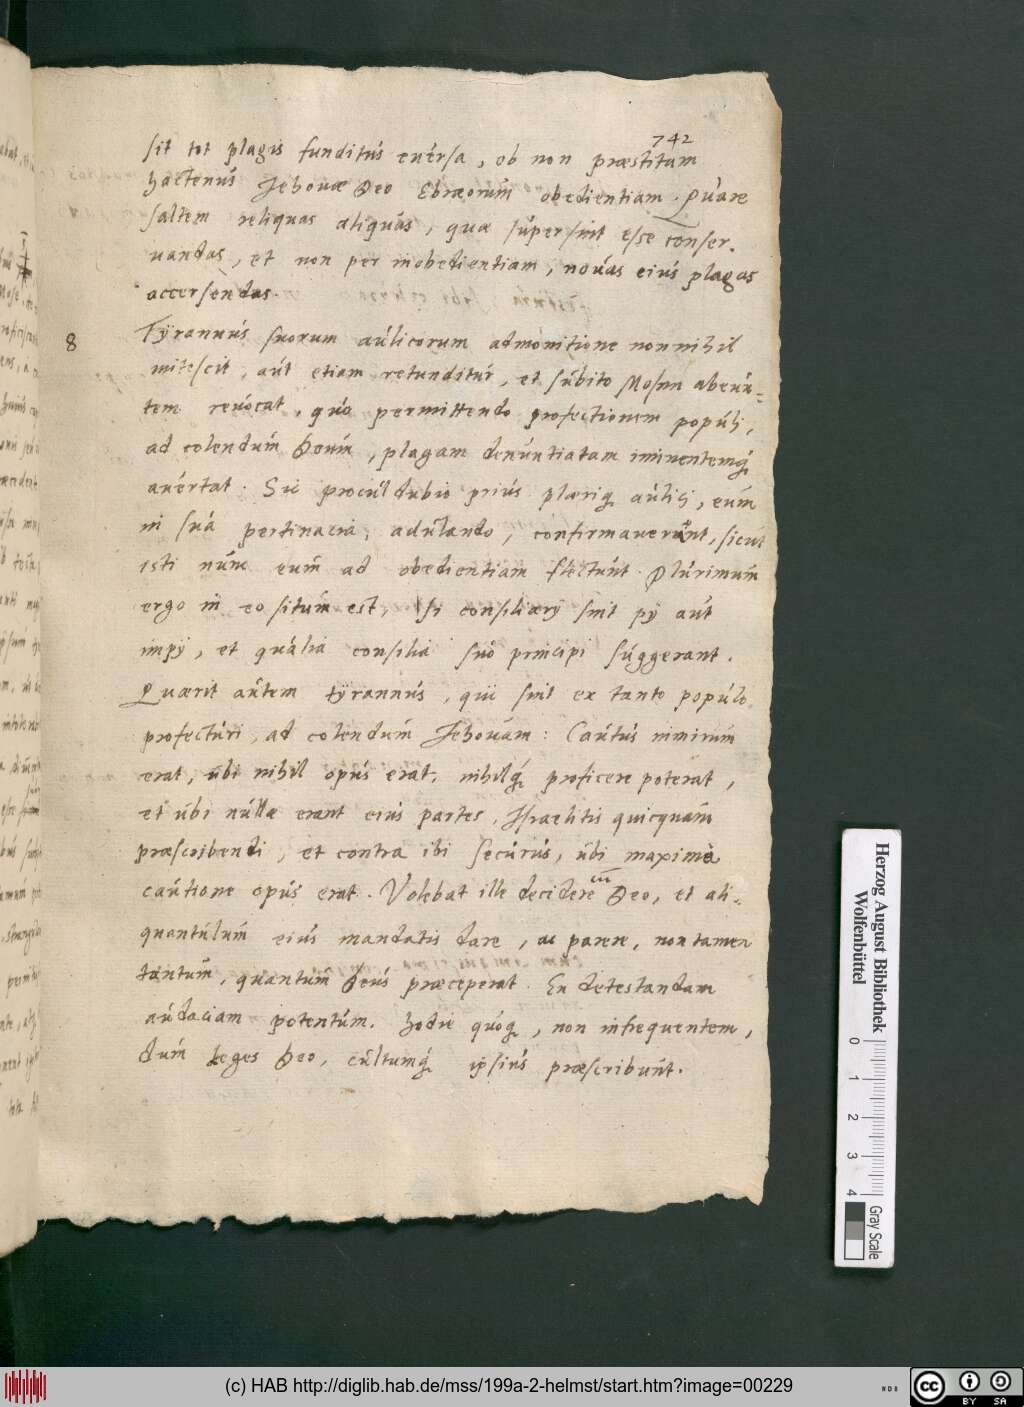 742
sit tot plagis funditus eversa, ob non præstitam
hactenus Jehovæ Deo Ebræorum obedientiam. Quare
saltem reliquas aliquas, quæ supersint esse conser-
vandas, et non per inobedientiam, novas eius plagas
accersendas.
8 Tÿrannus suorum aulicorum admonitione nonnihil
mitescit, aut etiam retunditur, et subito Mosen abeun-
tem revocat, quo permittendo profectionem populi,
ad colendum Deum, plagam denuntiatam iminentemq́
avertat. Sic proculdubio prius pleriq aulici, eum
in sua pertinacia, adulando, confirmaverunt, sicut
isti nunc eum ad obedientiam flectunt. Plurimum
ergo in eo situm est, si consiliarij sint pij aut
impij, et qualia consilia suo principi suggerant.
Quærit autem tÿrannus, qui sint ex tanto populo
profecturi, ad colendum Jehovam: Cautus nimirum
erat, ubi nihil opus erat, nihilq́ proficere poterat,
et ubi nullæ erant eius partes, Israelitis quicquam
præscribendi, et contra ibi securus, ubi maxime
cautione opus erat. Volebat ille decidere cum Deo, et ali-
quantulum eius mandatis dare, ac parere, non tamen
tantum, quantum Deus præceperat. En detestandam
audaciam potentum. hodie quoq, non infrequentem,
dum leges Deo, cultumq́ ipsius præscribunt.
Herzog August Bibliothek
Wolfenbüttel
0 1 2 3 4
Gray Scale
(c) HAB http://diglib.hab.de/mss/199a-2-helmst/start.htm?image=00229
cc BY SA